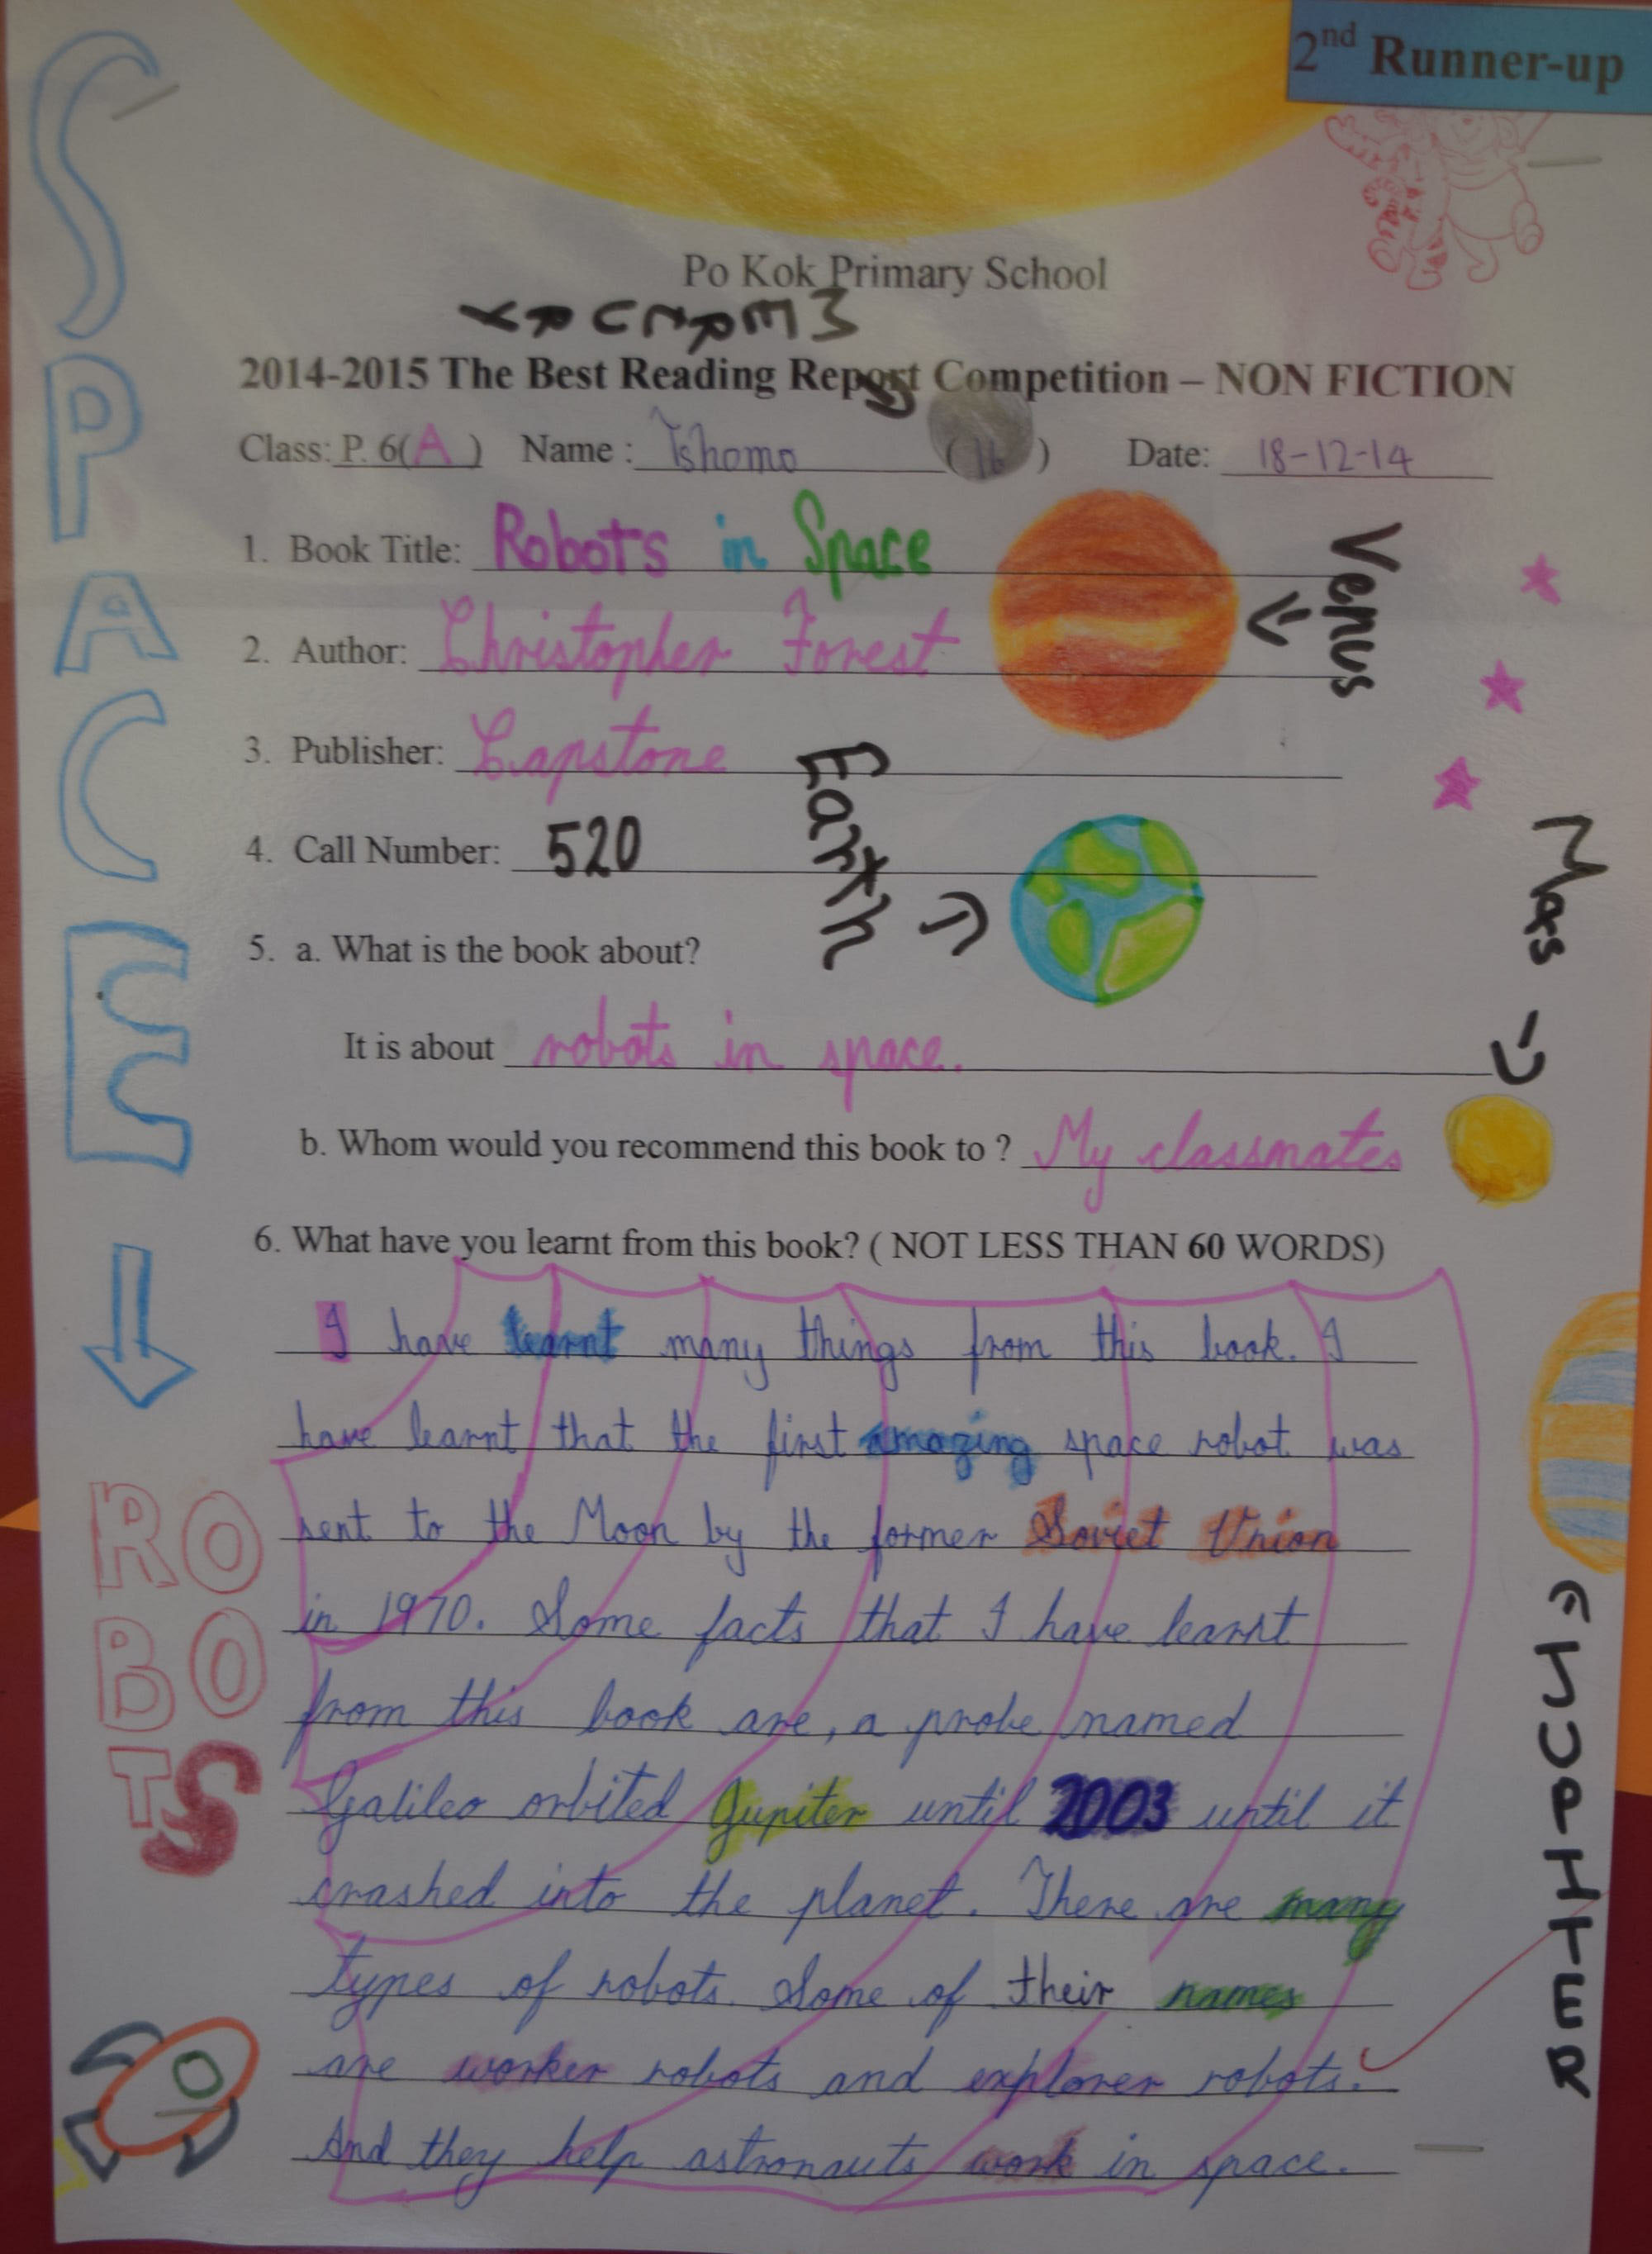 2nd Runner-up
Po Kok Primary School
MERCURY
2014-2015 The Best Reading Report Competition – NON FICTION
Class: P. 6(A) Name : Tshomo (16) Date: 18-12-14
1. Book Title: Robots in Space
Venus
2. Author: Christopher Forest
3. Publisher: Capstone
Earth
4. Call Number: 520
Mars
5. a. What is the book about?
It is about robots in space.
b. Whom would you recommend this book to ? My classmates
6. What have you learnt from this book? ( NOT LESS THAN 60 WORDS)
I have learnt many things from this book. I
have learnt that the first amazing space robot was
sent to the Moon by the former Soviet Union
in 1970. Some facts that I have learnt
from this book are, a probe named
Galileo orbited Jupiter until 2003 until it
crashed into the planet. There are many
types of robots. Some of their names
are worker robots and explorer robots.
And they help astronauts work in space.
JUPITER
SPACE
ROBOTS